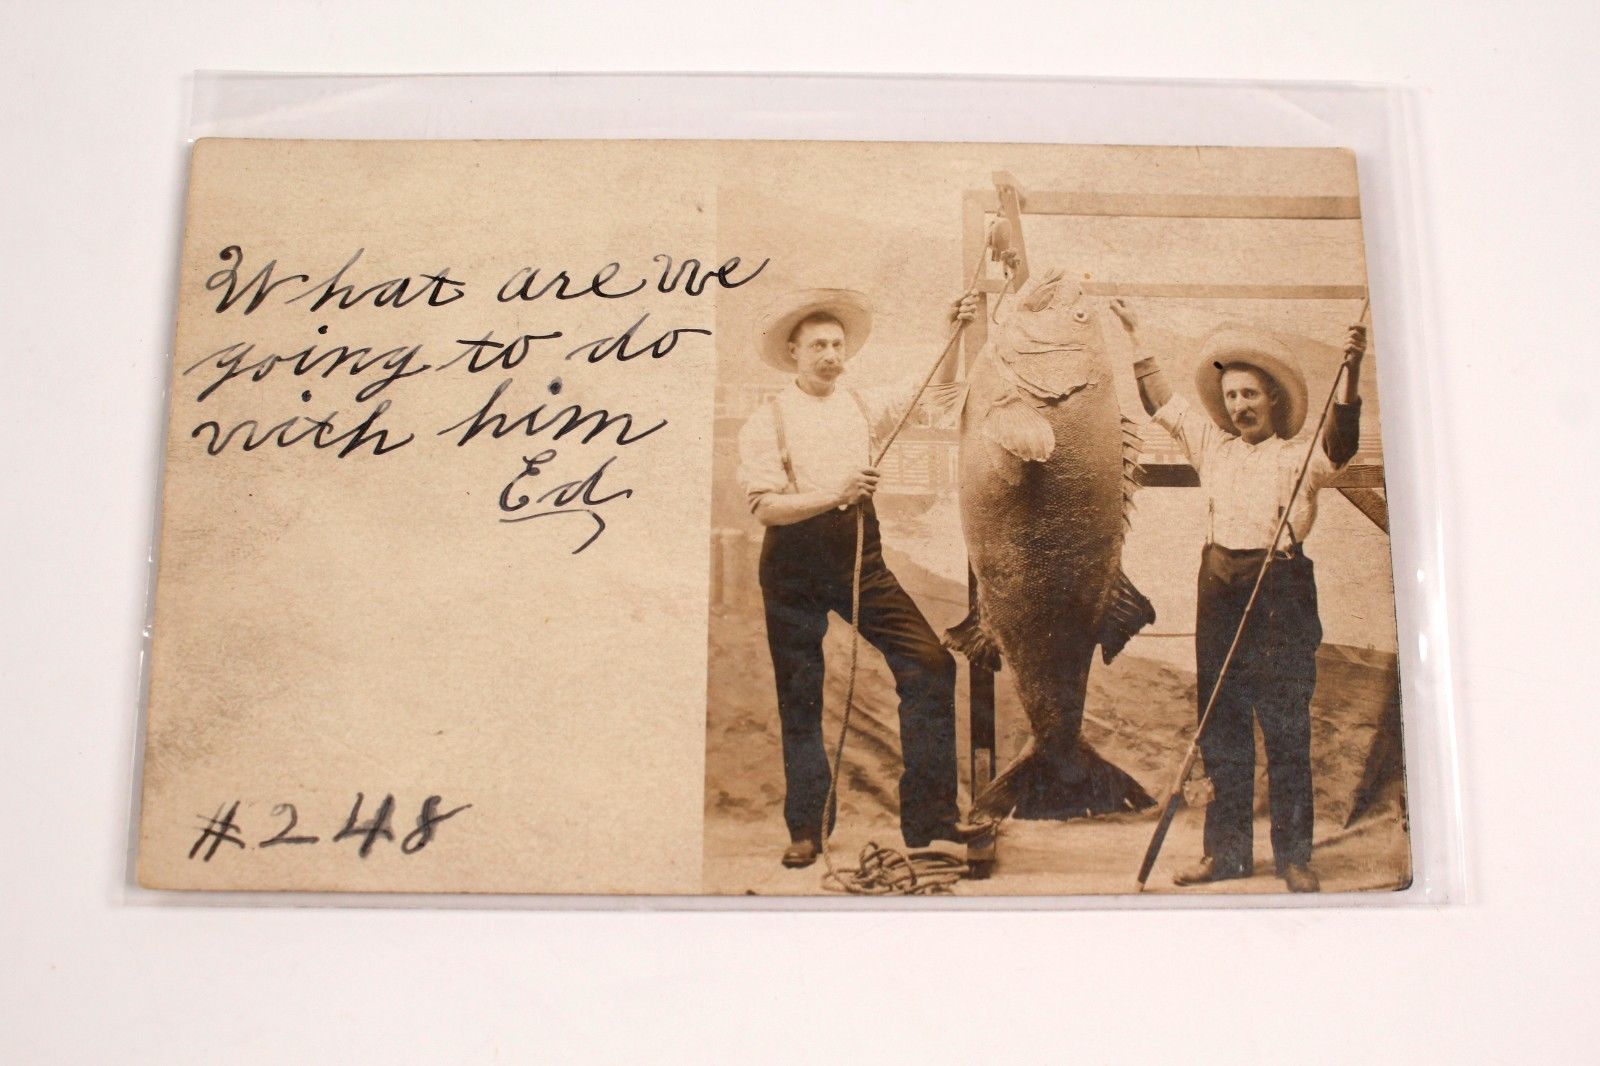 What are we
going to do
with him
Ed
#248